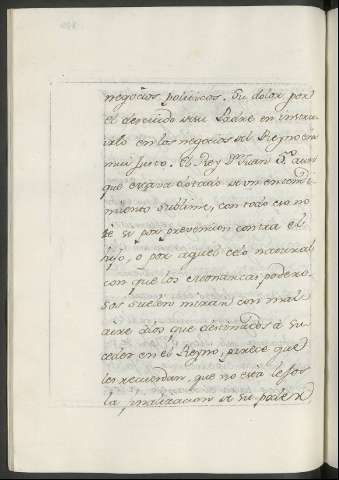 negocios politicos. Su dolor por
el descuido de su Padre en instru
irlo en los negocios del Reyno era
mui justo. El Rey Dn Juan 5º aun
que estava dotado de un entendi
miento sublime, con todo eso no
sè si por prevencion contra el
hijo, o por aquel celo natural
con que los monarcas podero-
sos suelen mirar con mal
aire a los que destinados a su-
ceder en el Reyno, parece que
les recuerdan, que no està lejos
la finalizacion de su poder